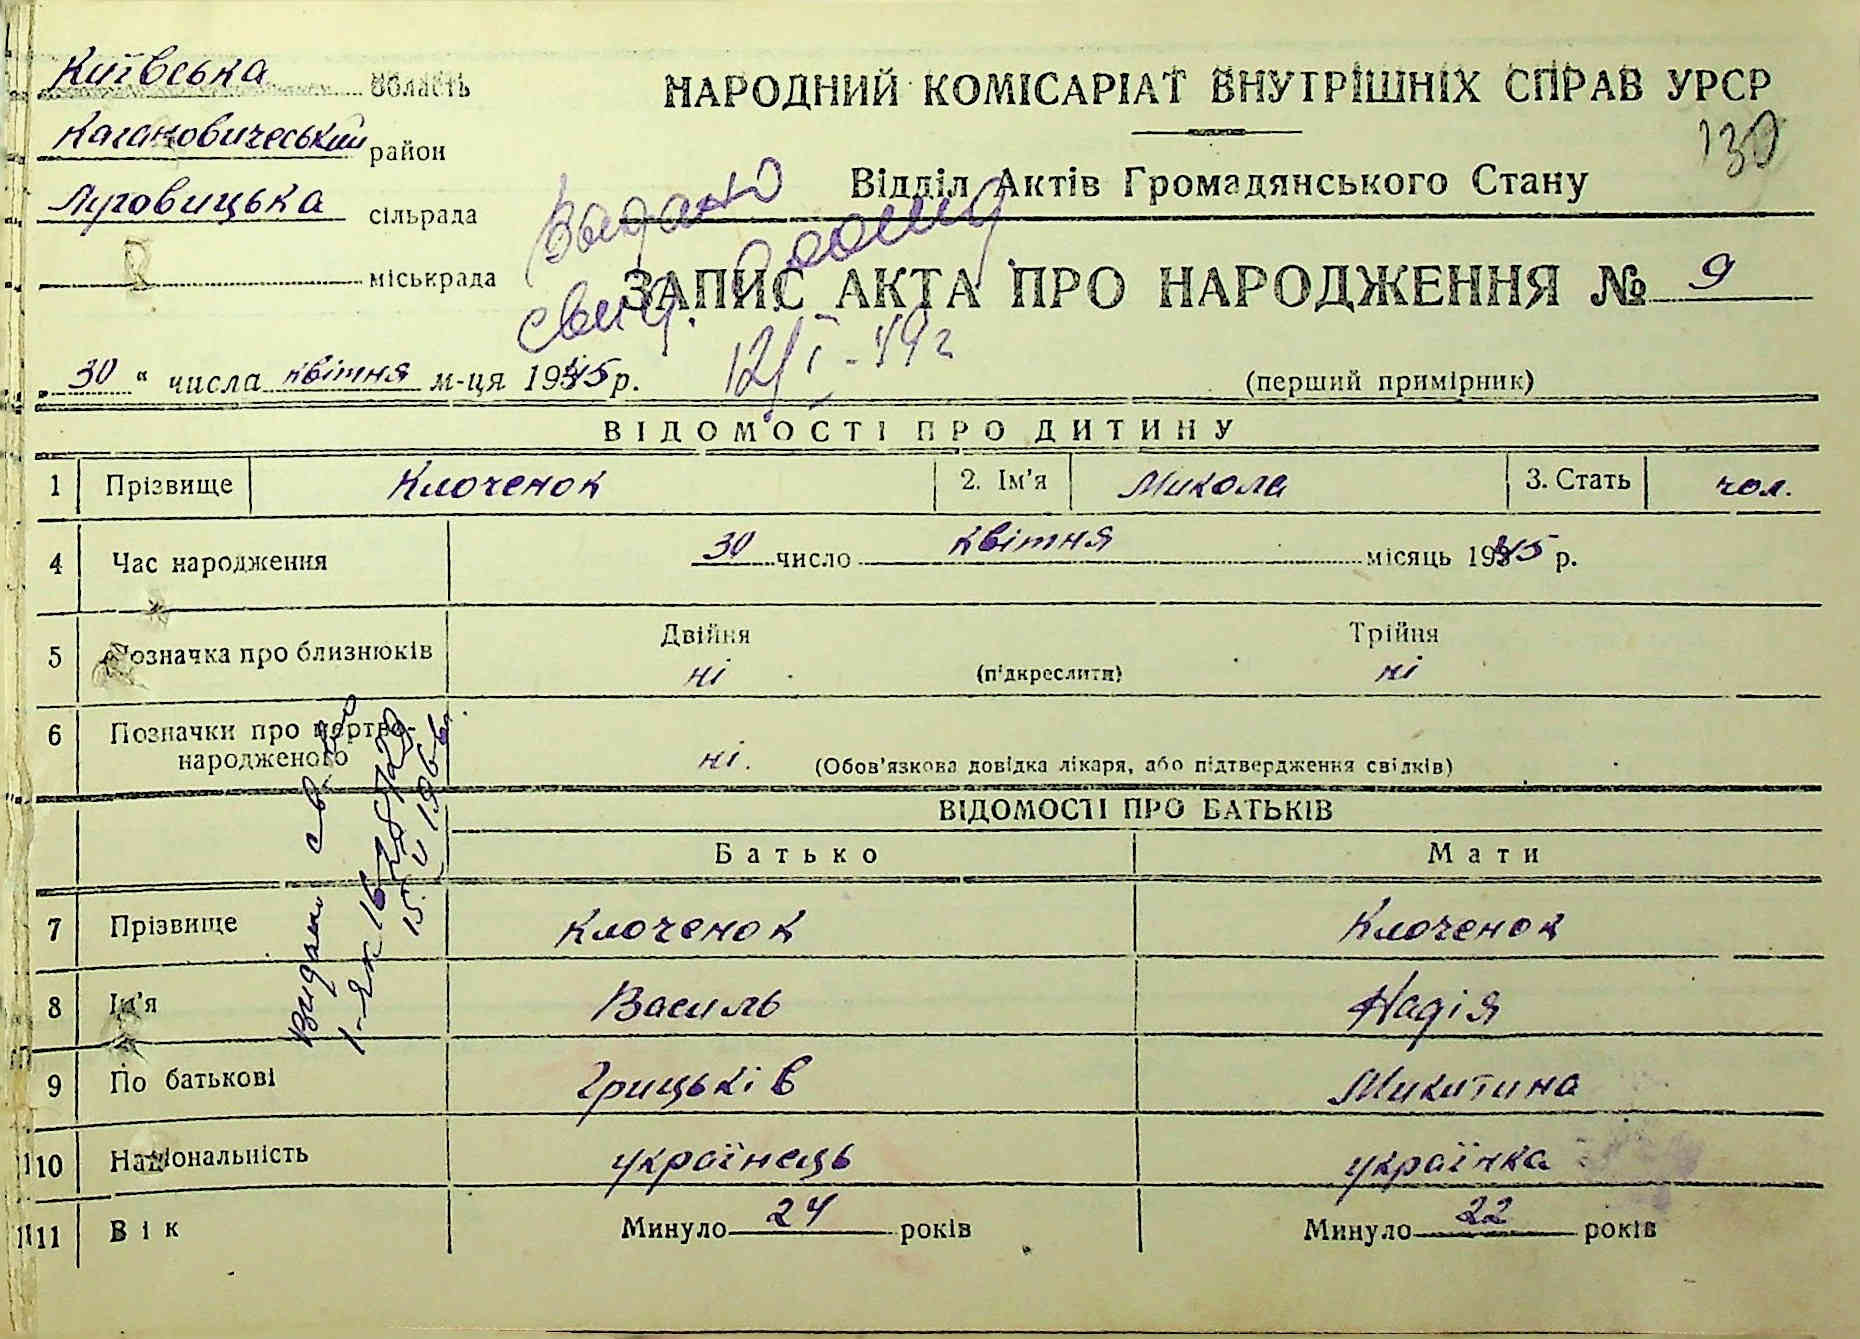 Київська область
НАРОДНИЙ КОМІСАРІАТ ВНУТРІШНІХ СПРАВ УРСР
Кагановичеський район
130
Луговицька сільрада
Відділ Актів Громадянського Стану
Видано
міськрада
ЗАПИС АКТА ПРО НАРОДЖЕННЯ № 9
свид.
12/I-49г
„30“ числа квітня м-ця 1945 р.
(перший примірник)
ВІДОМОСТІ ПРО ДИТИНУ
1 Прізвище Клоченок 2. Ім'я Микола 3. Стать чол.
4 Час народження 30 число квітня місяць 1945 р.
5 Позначка про близнюків Двійня ні (підкреслити) Трійня ні
6 Позначки про мертво-
народженого ні. (Обов'язкова довідка лікаря, або підтвердження свідків)
Видано св-во
15. V 1966г.
ВІДОМОСТІ ПРО БАТЬКІВ
Батько Мати
7 Прізвище Клоченок Клоченок
8 Ім'я Василь Надія
9 По батькові Грицьків Микитина
10 Національність українець українка
11 Вік Минуло 24 років Минуло 22 років